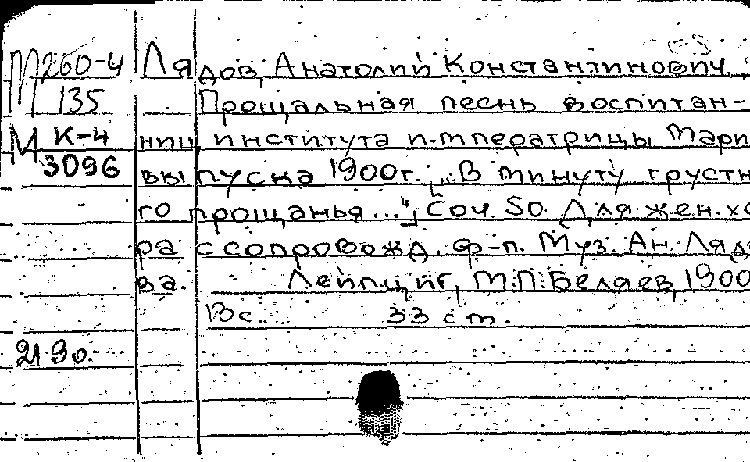 М260-4 Лядов, Анатолий Константинович.
135 Прощальная песнь воспитан-
М К-4 ниц института императрицы Мари
3096 выпуска 1900г. „В минуту грустн
го прощанья..."; Соч. 50. Для жен. хо
ра с сопровожд. ф-п. Муз. Ан. Лядо
ва. Лейпциг, М.П. Беляев, 1900
13с. 33 ст.
21.90.